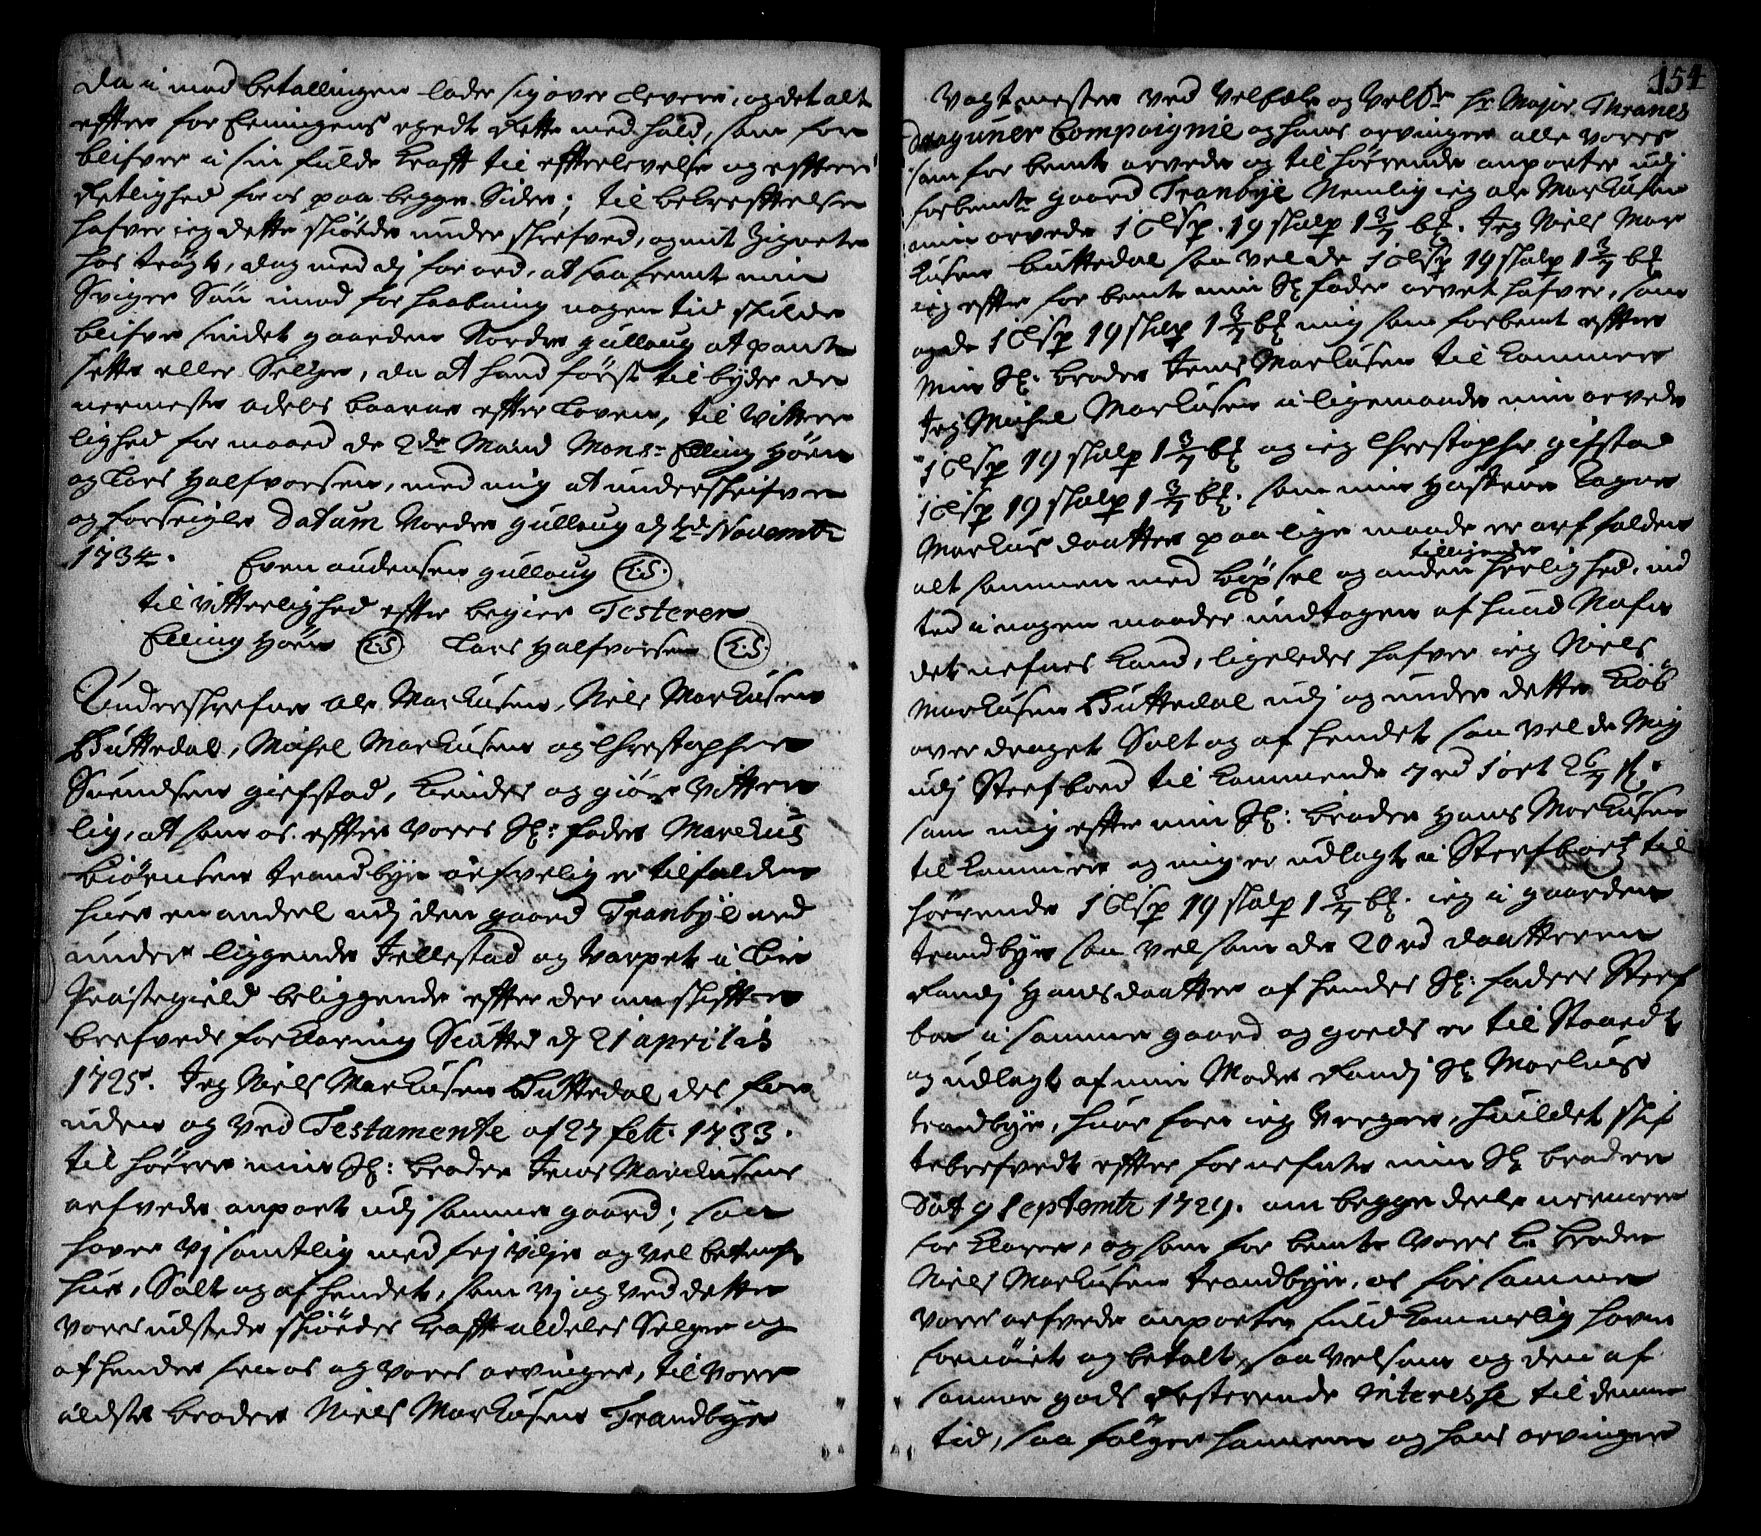 da i mod betallingen lader sig over levere, og det alt
effter foreeningens egedt Rette med hold, som for
blifver i sin fulde Krafft til effterlevelse og effter
Retlighed for os paa begge Sider; til bekrefftelse
hafver ieg dette skiøde under skrefved, og mit Zignete
hos trögt, dog med dj for ord, at saa fremt min
Sviger Søn imod forhaabning nogen tid skulde
blifve sindet gaarden Nordre gullaug at pant
sette eller Selge, da at hand først tilbyder de
nermeste odels baarne effter Loven, til Vitter
lighed for maard de 2de Mænd Mons: Elling Höen
og Lars Halfvorsen, med mig at underskrifve
og forseigle Datum Nordre gullaug d 2de Novembr
1734.
Even audensen gullaug (L.S.)
til vitterlighed effter begier Testerer
Elling Höen (L.S) Lars Halfvorsen (L.S)
Underskrefne ole Markusen, Niels Markusen
Buttedal, Michel Markusen og Chrestopher
Suendsen giefstad, Kiendes og giör Vitter
lig, at som os effter Vores Sl: fader Marckus
Biörensen trandbye arfvelig er tilfalden
huer en andeel udj den gaard Tranbye med
under liggende Jellestad og Varpet i Lier
Præstegield beliggende effter der om skiffte
brefveds forklaring Sluttet d 21 aprilis
1725. Jeg Niels Markusen Buttedal des for
uden og ved Testamente af 27 febr: 1733.
til hörer min Sl: broder Jens Marckusens
arfvede anpart udj samme gaard; saa
haver vj samtlig med frj vilje og vel betenk
hue, Solt og af hendet, som vj og ved dette
vores udstede skiödes Krafft aldeles Selger og
af hender fra os og vores arvinger, til vores
eldste broder Niels Markusen Trandbye
154
Vagtmester ved Velbaarne og Velbr hr Major Thranes
Draguner Compaignie og hans arvinger alle vores
som forbemte arvede og tilhörende anparter udj
forbemte gaard Tranbye Nemlig ieg ole Markusen
min arvede 1 Lispd. 19 skalp 1 3/7 bl. Jeg Niels Mar
kusen buttedal saa vel de 1 Lisp 19 skalp 1 3/7 bl
ieg effter for bemte min Sl fader arvet hafver, som
og de 1 Lisp 19 skalp 1 3/7 bl mig som forbemt effter
min Sl: broder Jens Markusen til kommer
Jeg Michel Markusen i ligemaade min arvede
1 Lisp 19 skalp 1 3/7 bl og ieg Chrestopher gifstad
1 Lisp 19 skalp 1 3/7 bl. som min Hustrue Dagne
Markus daatter paa lige maade er arf falden
alt sammen med böxsel og anden tilligende herlighed, in
tet i nogen maader undtagen af huad Nafn
det nefnes kand, ligeledes hafver ieg Niels
Markusen Buttedal udj og under dette Kiöb
over draget Solt og af hendet saa vel de Mig
udj Sterfboed til kommende 7 rd 1 ort 2 6/7 s.
som mig effter min Sl: broder Hans Markusen
til kommer og mig er udlagt i Sterfboet til
hörende 1 Lisp 19 skalp 1 3/7 bl. ieg i gaarden
trandbye saa vel som de 20 rd daatteren
Randj Hansdaatter af hendes Sl: faders Sterf
boe i samme gaard og goeds er til Staaedt
og udlagt af min Moder Randj Sl Markus
trandbye, huor for ieg Verger, huildet skif
tebrefvedt effter fornefnte min Sl broder
Dat 9 Septembr 1729. om begge deele nermere
for klarer, og som for bemte Vores K: broder
Niels Markusen trandbye, os for samme
vores arfvede anparter fuldkommelig haver
fornöiet og betalt, saa vel som og den af
samme gods Resterende Interesse til denne
tid, saa fölger hannem og hans arvinger